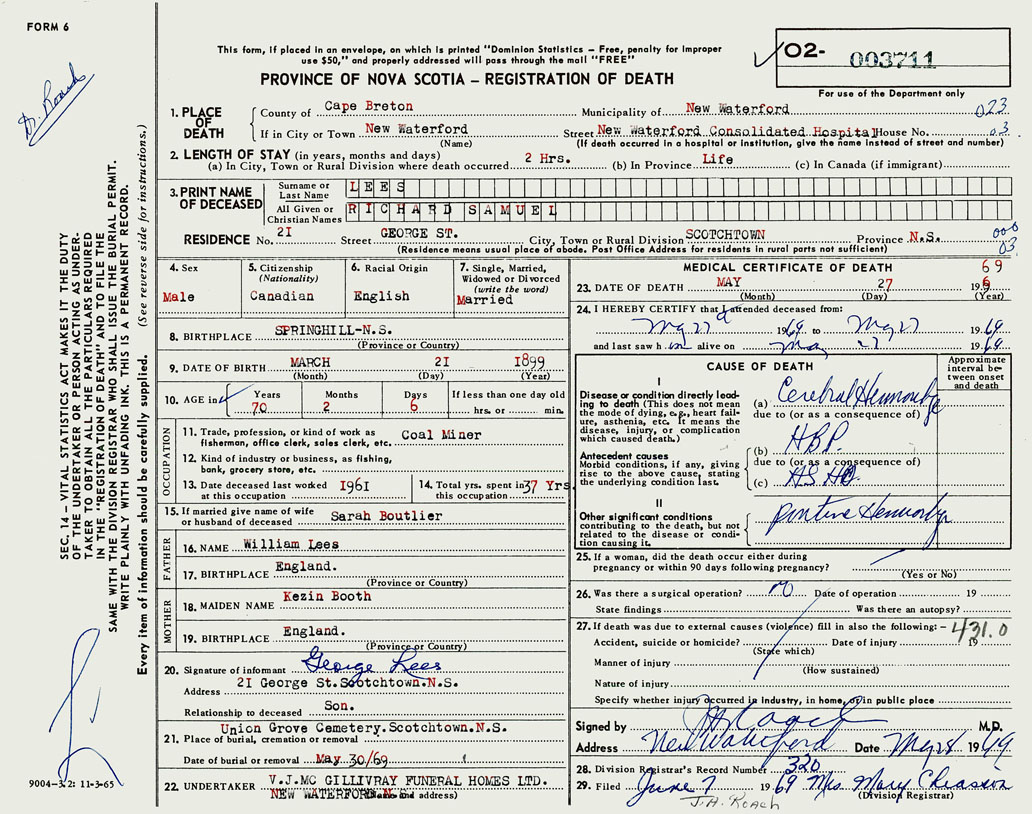 FORM 6
Dr. Roach
This form, if placed in an envelope, on which is printed "Dominion Statistics – Free, penalty for improper
use $50," and properly addressed will pass through the mail "FREE"
PROVINCE OF NOVA SCOTIA – REGISTRATION OF DEATH
O2- 003711
For use of the Department only
1. PLACE OF DEATH County of Cape Breton Municipality of New Waterford 023
If in City or Town New Waterford Street New Waterford Consolidated Hospital House No. 03
(Name) (If death occurred in a hospital or institution, give the name instead of street and number)
2. LENGTH OF STAY (in years, months and days)
(a) In City, Town or Rural Division where death occurred 2 Hrs. (b) In Province Life (c) In Canada (if immigrant)
3. PRINT NAME OF DECEASED Surname or Last Name LEES
All Given or Christian Names RICHARD SAMUEL
RESIDENCE No. 2I Street GEORGE ST. City, Town or Rural Division SCOTCHTOWN Province N.S. 000 03
(Residence means usual place of abode. Post Office Address for residents in rural parts not sufficient)
4. Sex Male
5. Citizenship (Nationality) Canadian
6. Racial Origin English
7. Single, Married, Widowed or Divorced (write the word) Married
8. BIRTHPLACE SPRINGHILL-N.S.
(Province or Country)
9. DATE OF BIRTH MARCH 2I I899
(Month) (Day) (Year)
10. AGE in Years 70 Months 2 Days 6 If less than one day old hrs. or min.
OCCUPATION
11. Trade, profession, or kind of work as fisherman, office clerk, sales clerk, etc. Coal Miner
12. Kind of industry or business, as fishing, bank, grocery store, etc.
13. Date deceased last worked at this occupation I96I
14. Total yrs. spent in this occupation 37 Yrs
15. If married give name of wife or husband of deceased Sarah Boutlier
FATHER
16. NAME William Lees
17. BIRTHPLACE England.
(Province or Country)
MOTHER
18. MAIDEN NAME Kezin Booth
19. BIRTHPLACE England.
(Province or Country)
20. Signature of informant George Lees
Address 2I George St.Scotchtown.N.S.
Relationship to deceased Son.
21. Place of burial, cremation or removal Union Grove Cemetery.Scotchtown.N.S.
Date of burial or removal May 30/69
22. UNDERTAKER V.J.MC GILLIVRAY FUNERAL HOMES LTD.
NEW WATERFORD N.S. (Name and address)
MEDICAL CERTIFICATE OF DEATH
23. DATE OF DEATH MAY 27 19 69
(Month) (Day) (Year)
24. I HEREBY CERTIFY that I attended deceased from:
May 27 1969 to May 27 1969
and last saw h im alive on May 27 1969
CAUSE OF DEATH
Approximate interval between onset and death
I
Disease or condition directly leading to death (This does not mean the mode of dying, e.g., heart failure, asthenia, etc. It means the disease, injury, or complication which caused death.)
(a) Cerebral Hemorrhage
due to (or as a consequence of)
Antecedent causes
Morbid conditions, if any, giving rise to the above cause, stating the underlying condition last.
(b) HBP
due to (or as a consequence of)
(c) ASHD
II
Other significant conditions contributing to the death, but not related to the disease or condition causing it.
Pontine Hemorrhage
25. If a woman, did the death occur either during pregnancy or within 90 days following pregnancy?
(Yes or No)
26. Was there a surgical operation? no Date of operation 19
State findings Was there an autopsy?
27. If death was due to external causes (violence) fill in also the following: – 431.0
Accident, suicide or homicide? Date of injury 19
(State which)
Manner of injury
(How sustained)
Nature of injury
Specify whether injury occurred in industry, in home, or in public place
Signed by J A Roach M.D.
Address New Waterford Date May 28 1969
28. Division Registrar's Record Number 320
29. Filed June 7 1969 Mrs Mary Chiasson
(Division Registrar)
J.A. ROACH
SEC. 14 – VITAL STATISTICS ACT MAKES IT THE DUTY
OF THE UNDERTAKER OR PERSON ACTING AS UNDER-
TAKER TO OBTAIN ALL THE PARTICULARS REQUIRED
IN THE "REGISTRATION OF DEATH" AND TO FILE THE
SAME WITH THE DIVISION REGISTRAR WHO SHALL ISSUE THE BURIAL PERMIT.
WRITE PLAINLY WITH UNFADING INK. THIS IS A PERMANENT RECORD.
Every item of information should be carefully supplied. (See reverse side for instructions.)
9004–3.2: 11-3-65